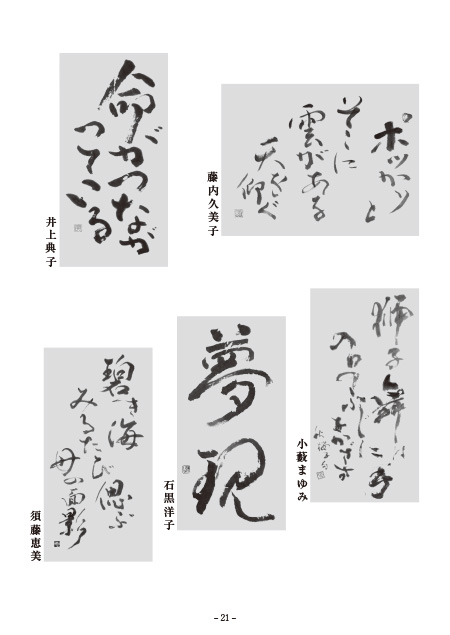 ポッカリと
そこに
雲がある
天を仰ぐ
藤内久美子
命がつなが
っている
井上典子
獅子舞
小藪まゆみ
夢現
石黒洋子
碧き海
みるたび偲ぶ
母の面影
須藤恵美
- 21 -